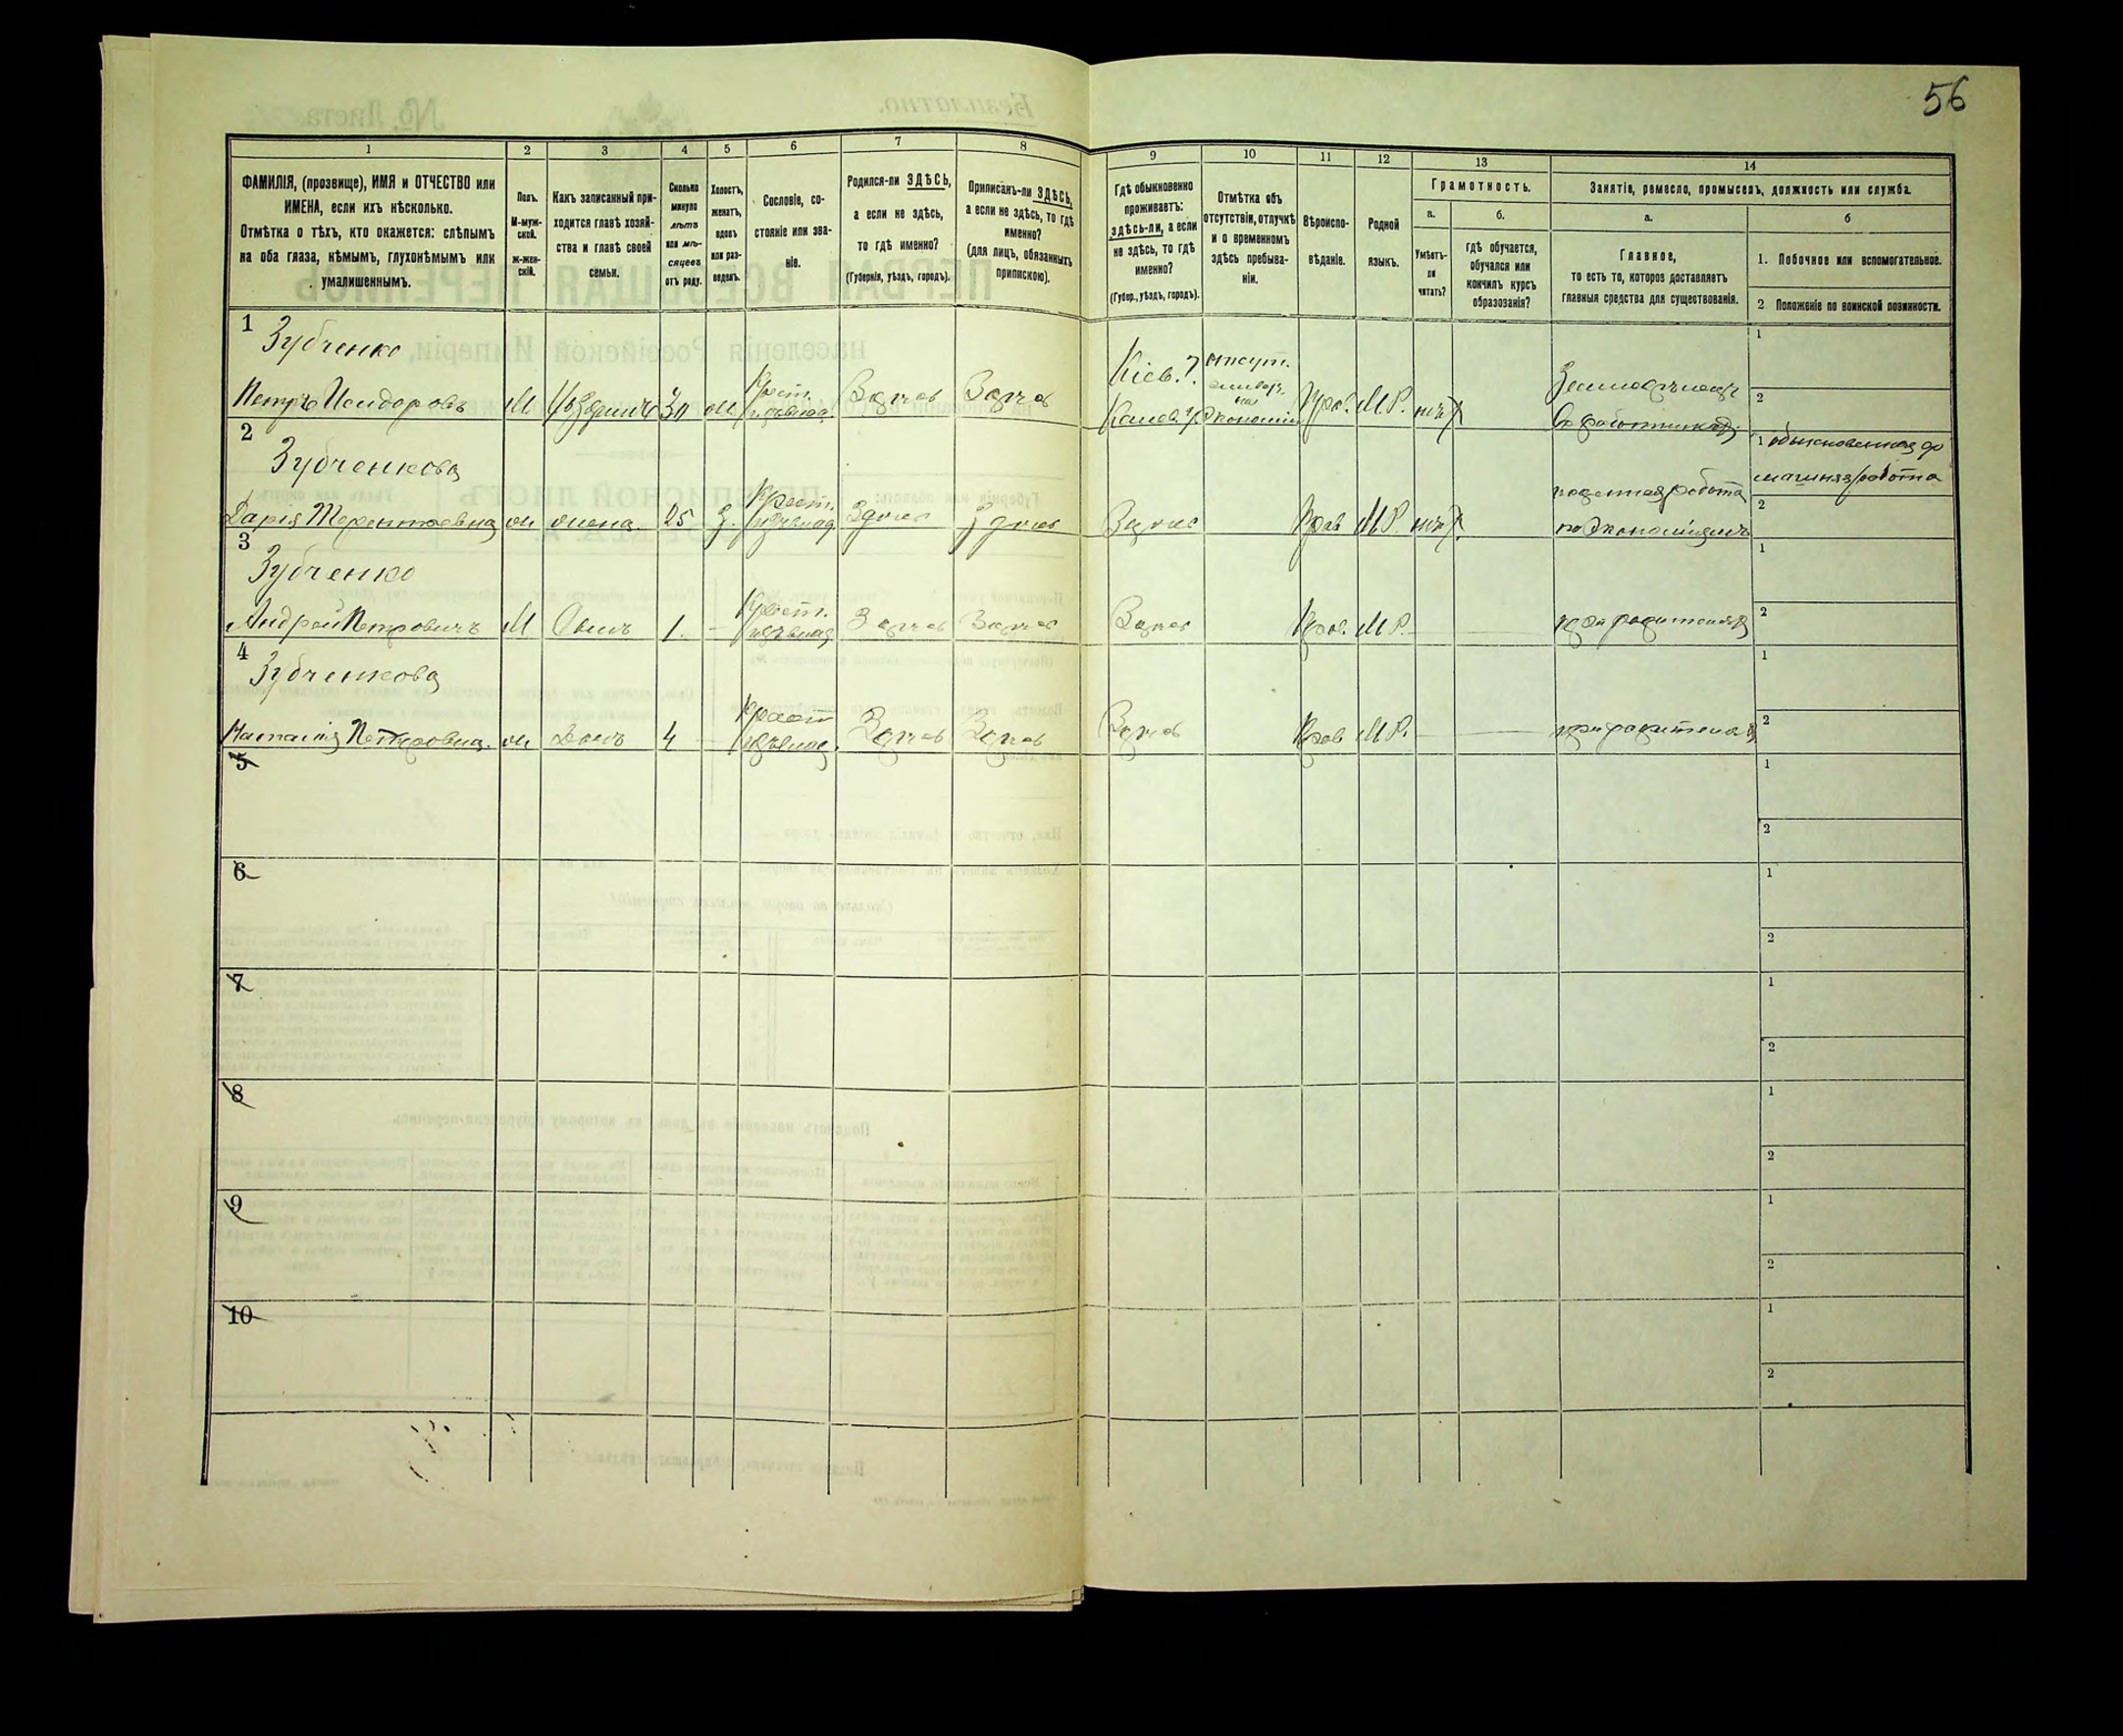 56
1
2
3
4
5
6
7
8
9
10
11
12
13
14
ФАМИЛІЯ, (прозвище), ИМЯ и ОТЧЕСТВО или
ИМЕНА, если ихъ нѣсколько.
Отмѣтка о тѣхъ, кто окажется: слѣпымъ
на оба глаза, нѣмымъ, глухонѣмымъ или
умалишеннымъ.
Полъ.
М-муж-
ской.
ж-жен-
скій.
Какъ записанный при-
ходится главѣ хозяй-
ства и главѣ своей
семьи.
Сколько
минуло
лѣтъ
или мѣ-
сяцевъ
отъ роду.
Холостъ,
женатъ,
вдовъ
или раз-
веденъ.
Сословіе, со-
стояніе или зва-
ніе.
Родился-ли ЗДѢСЬ,
а если не здѣсь,
то гдѣ именно?
(Губернія, уѣздъ, городъ).
Приписанъ-ли ЗДѢСЬ,
а если не здѣсь, то гдѣ
именно?
(для лицъ, обязанныхъ
припискою).
Гдѣ обыкновенно
проживаетъ:
здѣсь-ли, а если
не здѣсь, то гдѣ
именно?
(Губер., уѣздъ, городъ).
Отмѣтка объ
отсутствіи, отлучкѣ
и о временномъ
здѣсь пребыва-
ніи.
Вѣроиспо-
вѣданіе.
Родной
языкъ.
Грамотность.
а.
Умѣетъ-
ли
читать?
б.
гдѣ обучается,
обучался или
кончилъ курсъ
образованія?
Занятіе, ремесло, промыселъ, должность или служба.
а.
Главное,
то есть то, которое доставляетъ
главныя средства для существованія.
б
1. Побочное или вспомогательное.
2 Положеніе по воинской повинности.
1
Зубченко
Петръ М 30 ж Крест. Здѣсь Здѣсь
Кіев. г. отсут.
Экономіи Прав. М.Р. нѣтъ
Земледѣлецъ
1
2
2
Зубченкова
Дарія Терентьевна ж жена 25 з. Крест. Здѣсь Здѣсь
Здѣсь Прав М.Р. нѣтъ
поденная работа
по Экономіямъ
1 обыкновенная до
машняя работа
2
3
Зубченко
Андрей Петровичъ М Сынъ 1. Крест. Здѣсь Здѣсь
Здѣсь Прав. М.Р. при родителяхъ
1
2
4
Зубченкова
Наталія Петровна. ж Дочь 4 Крест Здѣсь Здѣсь
Здѣсь Прав М.Р. при родителяхъ
1
2
5
1
2
6
1
2
7
1
2
8
1
2
9
1
2
10
1
2